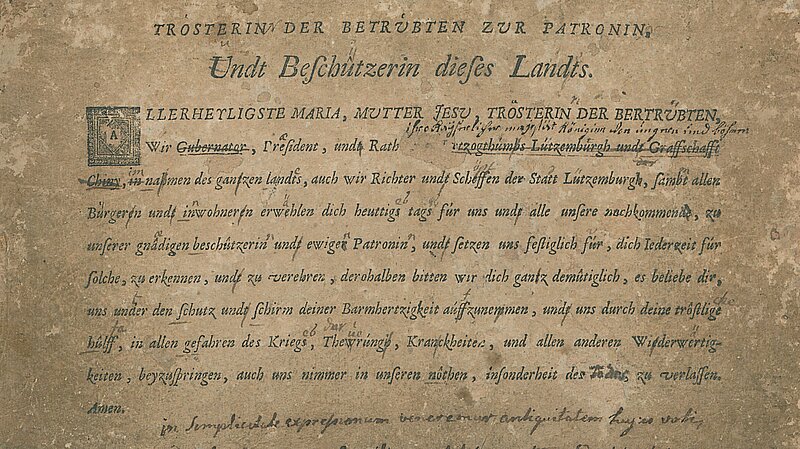 TRÖSTERIN DER BETRÜBTEN ZUR PATRONIN,
Undt Beſchützerin dieſes Landts.
ALLERHEYLIGSTE MARIA, MUTTER JESU, TRÖSTERIN DER BERTRÜBTEN,
ihro Käyserlicher majestät Königinn von ungarn und böhem
Wir Gubernator, Præſident, undt Rath rtzogthumbs Lützemburgh undt Graffschafft
Chiny, im in nahmen des gantzen landts, auch wir Richter undt Scheffen der Statt Lützemburgh, ſambt allen
Bürgeren undt inwohneren erwehlen dich heuttigs tags für uns undt alle unſere nachkommende, zu
unſerer gnädigen beſchützerin undt ewigen Patronin, undt ſetzen uns feſtiglich für, dich Iederzeit für
ſolche, zu erkennen, undt zu verehren, derohalben bitten wir dich gantz demütiglich, es beliebe dir,
uns under den ſchutz undt ſchirm deiner Barmhertzigkeit auffzunemmen, undt uns durch deine tröſtlige
hülff, in allen gefahren des Kriegs, Thewrungh, Kranckheiten, und allen anderen Wiederwertig-
keiten, beyzuſpringen, auch uns nimmer in unſeren nöthen, inſonderheit des Todes zu verlaſſen.
Amen.
in simplicitate expressionum veneremur antiquitatem hujus voti,